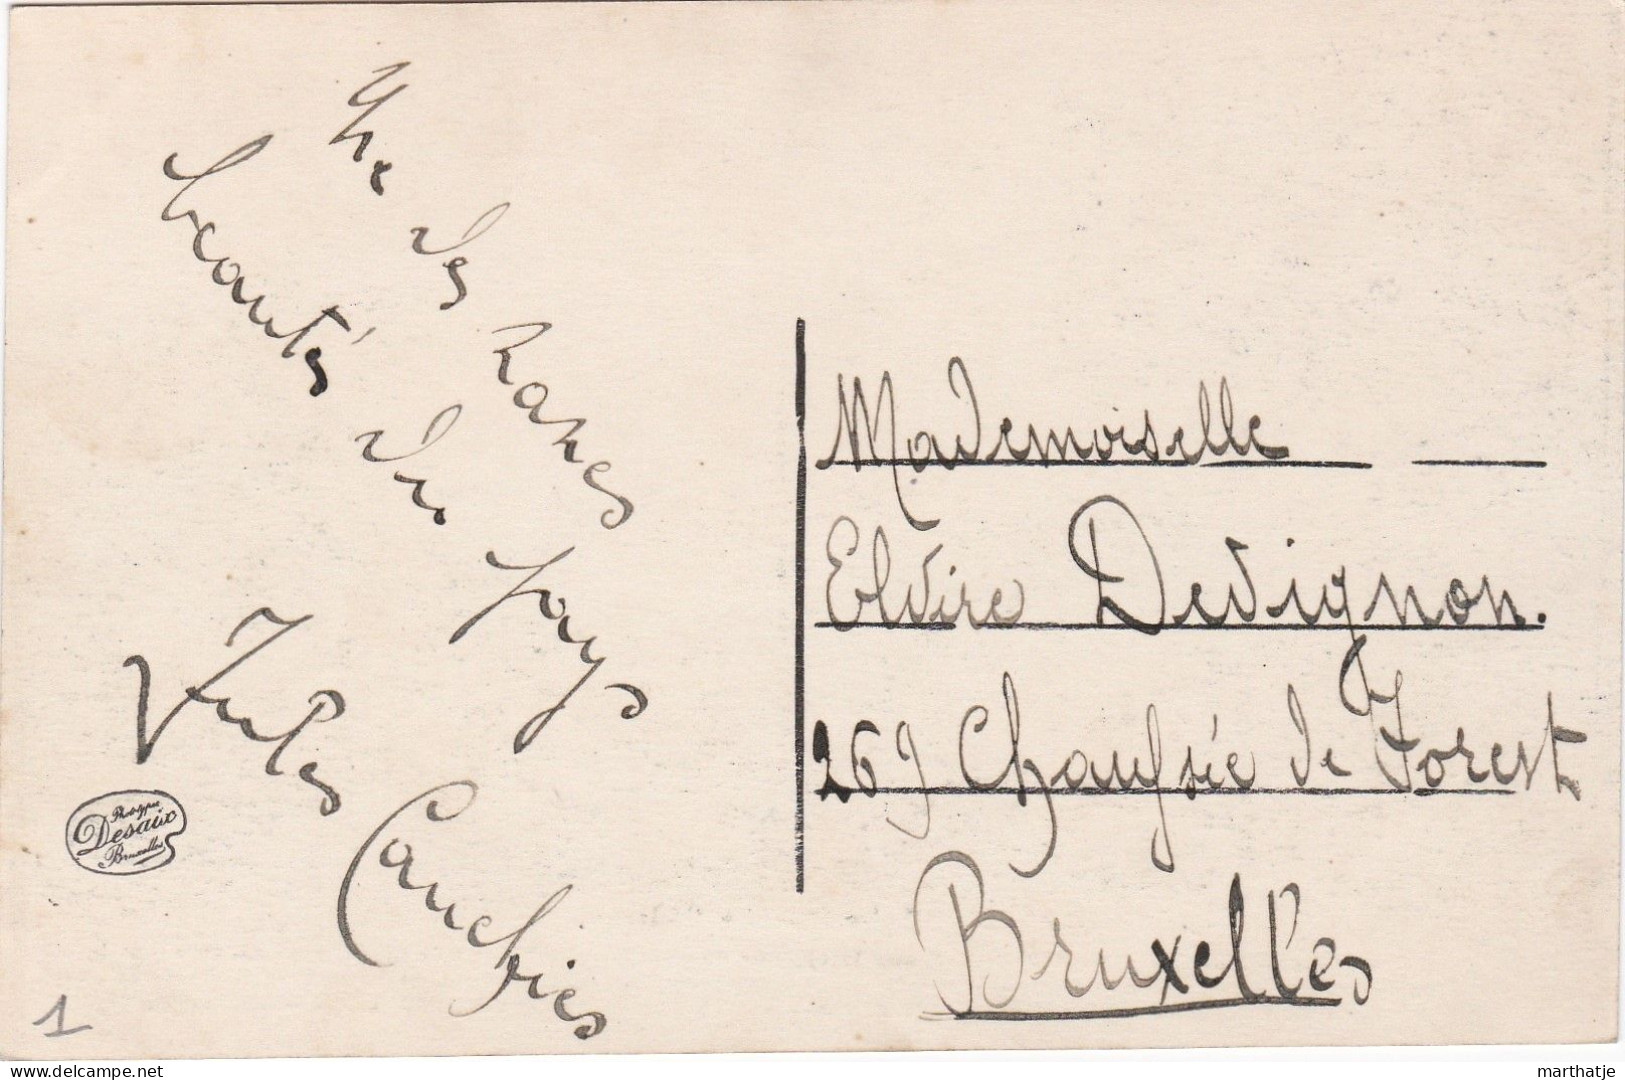 Une des rares
beautés du pays
Jules Cauchies
Philippe
Desaix
Bruxelles
1
Mademoiselle
Elvire Devignon.
269 Chaussée de Forest
Bruxelles
delcampe.net
marthatje